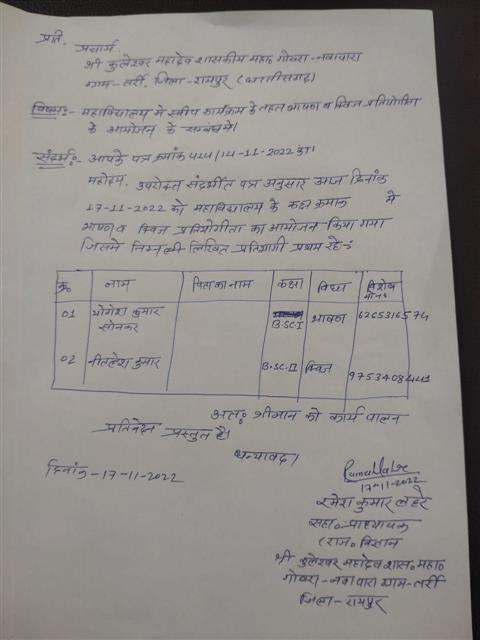 प्रति,
प्राचार्य
श्री कुलेश्वर महादेव शासकीय महा० गोबरा-नवापारा
ग्राम-तर्री, जिला-रायपुर (छत्तीसगढ़)
विषय:- महाविद्यालय में स्वीप कार्यक्रम के तहत भाषण व क्विज प्रतियोगिता
के आयोजन के सम्बन्ध में।
संदर्भ:- आपके पत्र क्रमांक 424/14-11-2022 का।
महोदय, उपरोक्त संदर्भीत पत्र अनुसार आज दिनांक
17-11-2022 को महाविद्यालय के कक्ष क्रमांक में
भाषण व क्विज प्रतियोगीता का आयोजन किया गया
जिसमे निम्न लिखित प्रतिभागी प्रथम रहे -:
क्र० नाम पिता का नाम कक्षा विधा विशेष
01 योगेश कुमार सोनकर B.SC-I भाषण 6265316574
02 नीतलेश कुमार B.SC-II क्विज 9753408441
अतः श्रीमान को कार्य पालन
प्रतिवेदन प्रस्तुत है।
धन्यवाद।
दिनांक-17-11-2022
17-11-2022
रमेश कुमार लहरे
सहा० प्राध्यापक
(राज० विज्ञान
श्री कुलेश्वर महादेव शास० महा०
गोबरा-नवापारा ग्राम-तर्री
जिला-रायपुर